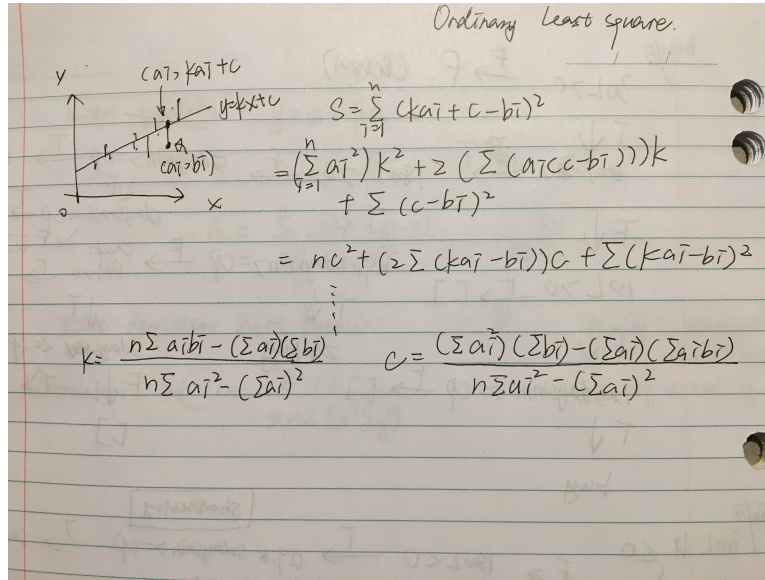 Ordinary Least square.
y
(ai, kai+c)
y=kx+c
(ai, bi)
0
x
S = Σ_{i=1}^{n} (kai + c - bi)²
= (Σ_{i=1}^{n} ai²) k² + 2 (Σ (ai(c-bi))) k
+ Σ (c-bi)²
= nc² + (2Σ (kai-bi))c + Σ(kai-bi)²
k = (nΣ aibi - (Σai)(Σbi)) / (nΣ ai² - (Σai)²)
c = ((Σai²)(Σbi) - (Σai)(Σaibi)) / (nΣai² - (Σai)²)